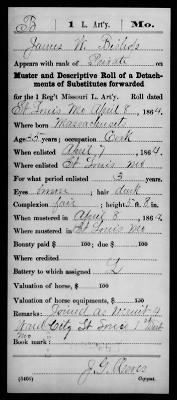 B | 1 L. Art'y. | Mo.
James W.
Appears with rank of Private on
Muster and Descriptive Roll of a Detachment
of Substitutes forwarded
for the 1 Reg't Missouri L. Art'y. Roll dated
St Louis Mo April 8, 1864.
Where born Massachusett
Age 35 years; occupation Cook
When enlisted April 7, 1864.
Where enlisted St Louis Mo
For what period enlisted 3 years.
Eyes ; hair dark
Complexion fair; height 5 ft. 8 in.
When mustered in April 8, 1864.
Where mustered in St Louis Mo
Bounty paid $ 100; due $ 100
Where credited
Battery to which assigned L
Valuation of horse, $ 100
Valuation of horse equipments, $ 100
Remarks: Joined as recruit
St Louis
Mo
Book mark:
J. G.
(546i) Copyist.